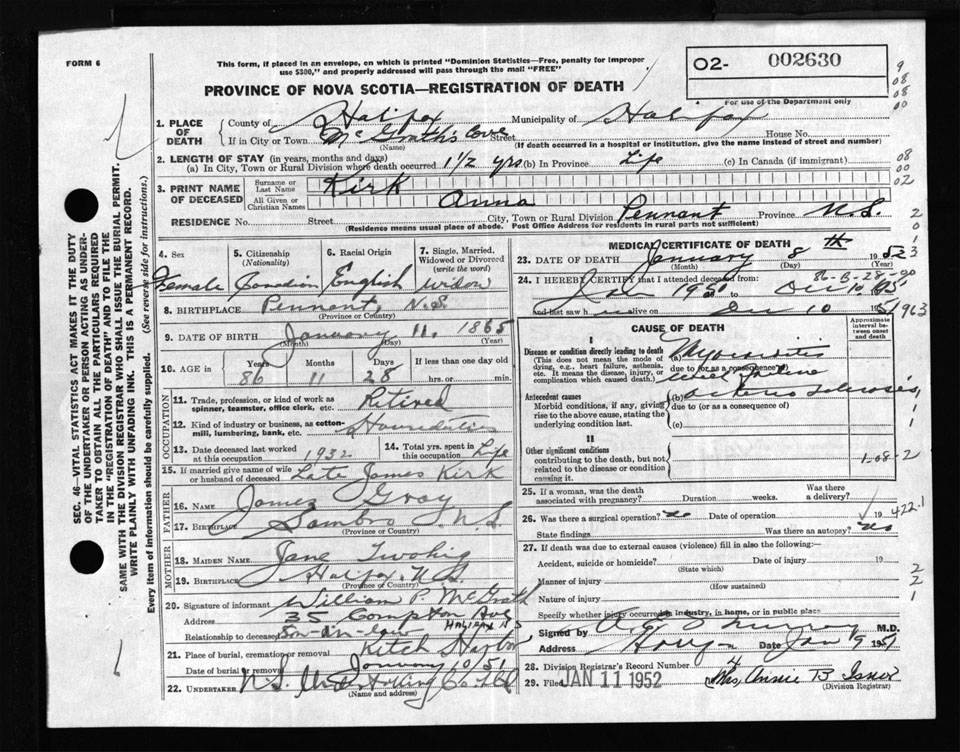 FORM 6
This form, if placed in an envelope, on which is printed "Dominion Statistics—Free, penalty for improper
use $300," and properly addressed will pass through the mail "FREE"
02- 002630
For use of the Department only
PROVINCE OF NOVA SCOTIA—REGISTRATION OF DEATH
SEC. 46—VITAL STATISTICS ACT MAKES IT THE DUTY
OF THE UNDERTAKER OR PERSON ACTING AS UNDER-
TAKER TO OBTAIN ALL THE PARTICULARS REQUIRED
IN THE "REGISTRATION OF DEATH" AND TO FILE THE
SAME WITH THE DIVISION REGISTRAR WHO SHALL ISSUE THE BURIAL PERMIT.
WRITE PLAINLY WITH UNFADING INK. THIS IS A PERMANENT RECORD.
Every item of information should be carefully supplied. (See reverse side for instructions.)
1. PLACE OF DEATH
County of Halifax Municipality of Halifax
If in City or Town McGrath's Cove Street House No.
(Name) (If death occurred in a hospital or institution, give the name instead of street and number)
2. LENGTH OF STAY (in years, months and days)
(a) In City, Town or Rural Division where death occurred 1 1/2 yrs (b) In Province Life (c) In Canada (if immigrant)
3. PRINT NAME OF DECEASED
Surname or Last Name Kirk
All Given or Christian Names Anna
RESIDENCE No. Street City, Town or Rural Division Pennant Province N.S.
(Residence means usual place of abode. Post Office Address for residents in rural parts not sufficient)
4. Sex Female
5. Citizenship (Nationality) Canadian
6. Racial Origin English
7. Single, Married, Widowed or Divorced (write the word) widow
8. BIRTHPLACE Pennant, N.S
(Province or Country)
9. DATE OF BIRTH January 11, 1865
(Month) (Day)
10. AGE in Years 86 Months 11 Days 28 If less than one day old hrs. or min.
OCCUPATION
11. Trade, profession, or kind of work as spinner, teamster, office clerk, etc. Retired
12. Kind of industry or business, as cotton-mill, lumbering, bank, etc.
13. Date deceased last worked at this occupation 1932
14. Total yrs. spent in this occupation Life
15. If married give name of wife or husband of deceased Late James Kirk
FATHER
16. NAME James Gray
17. BIRTHPLACE Sambro, N.S.
(Province or Country)
MOTHER
18. MAIDEN NAME Jane Twohig
19. BIRTHPLACE Halifax N.S.
(Province or Country)
20. Signature of informant William P. McGrath
Address 35 Compton Ave Halifax N S
Relationship to deceased Son-in-law
21. Place of burial, cremation or removal Ketch Harbor
Date of burial or removal January 10/51
22. UNDERTAKER N.S.
(Name and address)
MEDICAL CERTIFICATE OF DEATH
23. DATE OF DEATH January 8th 1952
(Month) (Day)
24. I HEREBY CERTIFY that I attended deceased from:
1951 to Dec 10 1951
and last saw h alive on Dec 10 1951
CAUSE OF DEATH
Approximate interval between onset and death
I
Disease or condition directly leading to death
(This does not mean the mode of dying, e.g., heart failure, asthenia, etc. It means the disease, injury, or complication which caused death.)
(a) Myocarditis
due to (or as a consequence of)
Antecedent causes
Morbid conditions, if any, giving rise to the above cause, stating the underlying condition last.
(b) arterio sclerosis
due to (or as a consequence of)
(c)
II
Other significant conditions
contributing to the death, but not related to the disease or condition causing it.
1-08-2
25. If a woman, was the death associated with pregnancy? Duration weeks. Was there a delivery?
26. Was there a surgical operation? no Date of operation 19 422.1
State findings Was there an autopsy? no
27. If death was due to external causes (violence) fill in also the following:
Accident, suicide or homicide? Date of injury 19
(State which)
Manner of injury
(How sustained)
Nature of injury
Specify whether injury occurred in industry, in home, or in public place
Signed by Murray M.D.
Address Date Jan 9 1951
28. Division Registrar's Record Number 4
29. Filed JAN 11 1952 Mrs, Annie B
(Division Registrar)